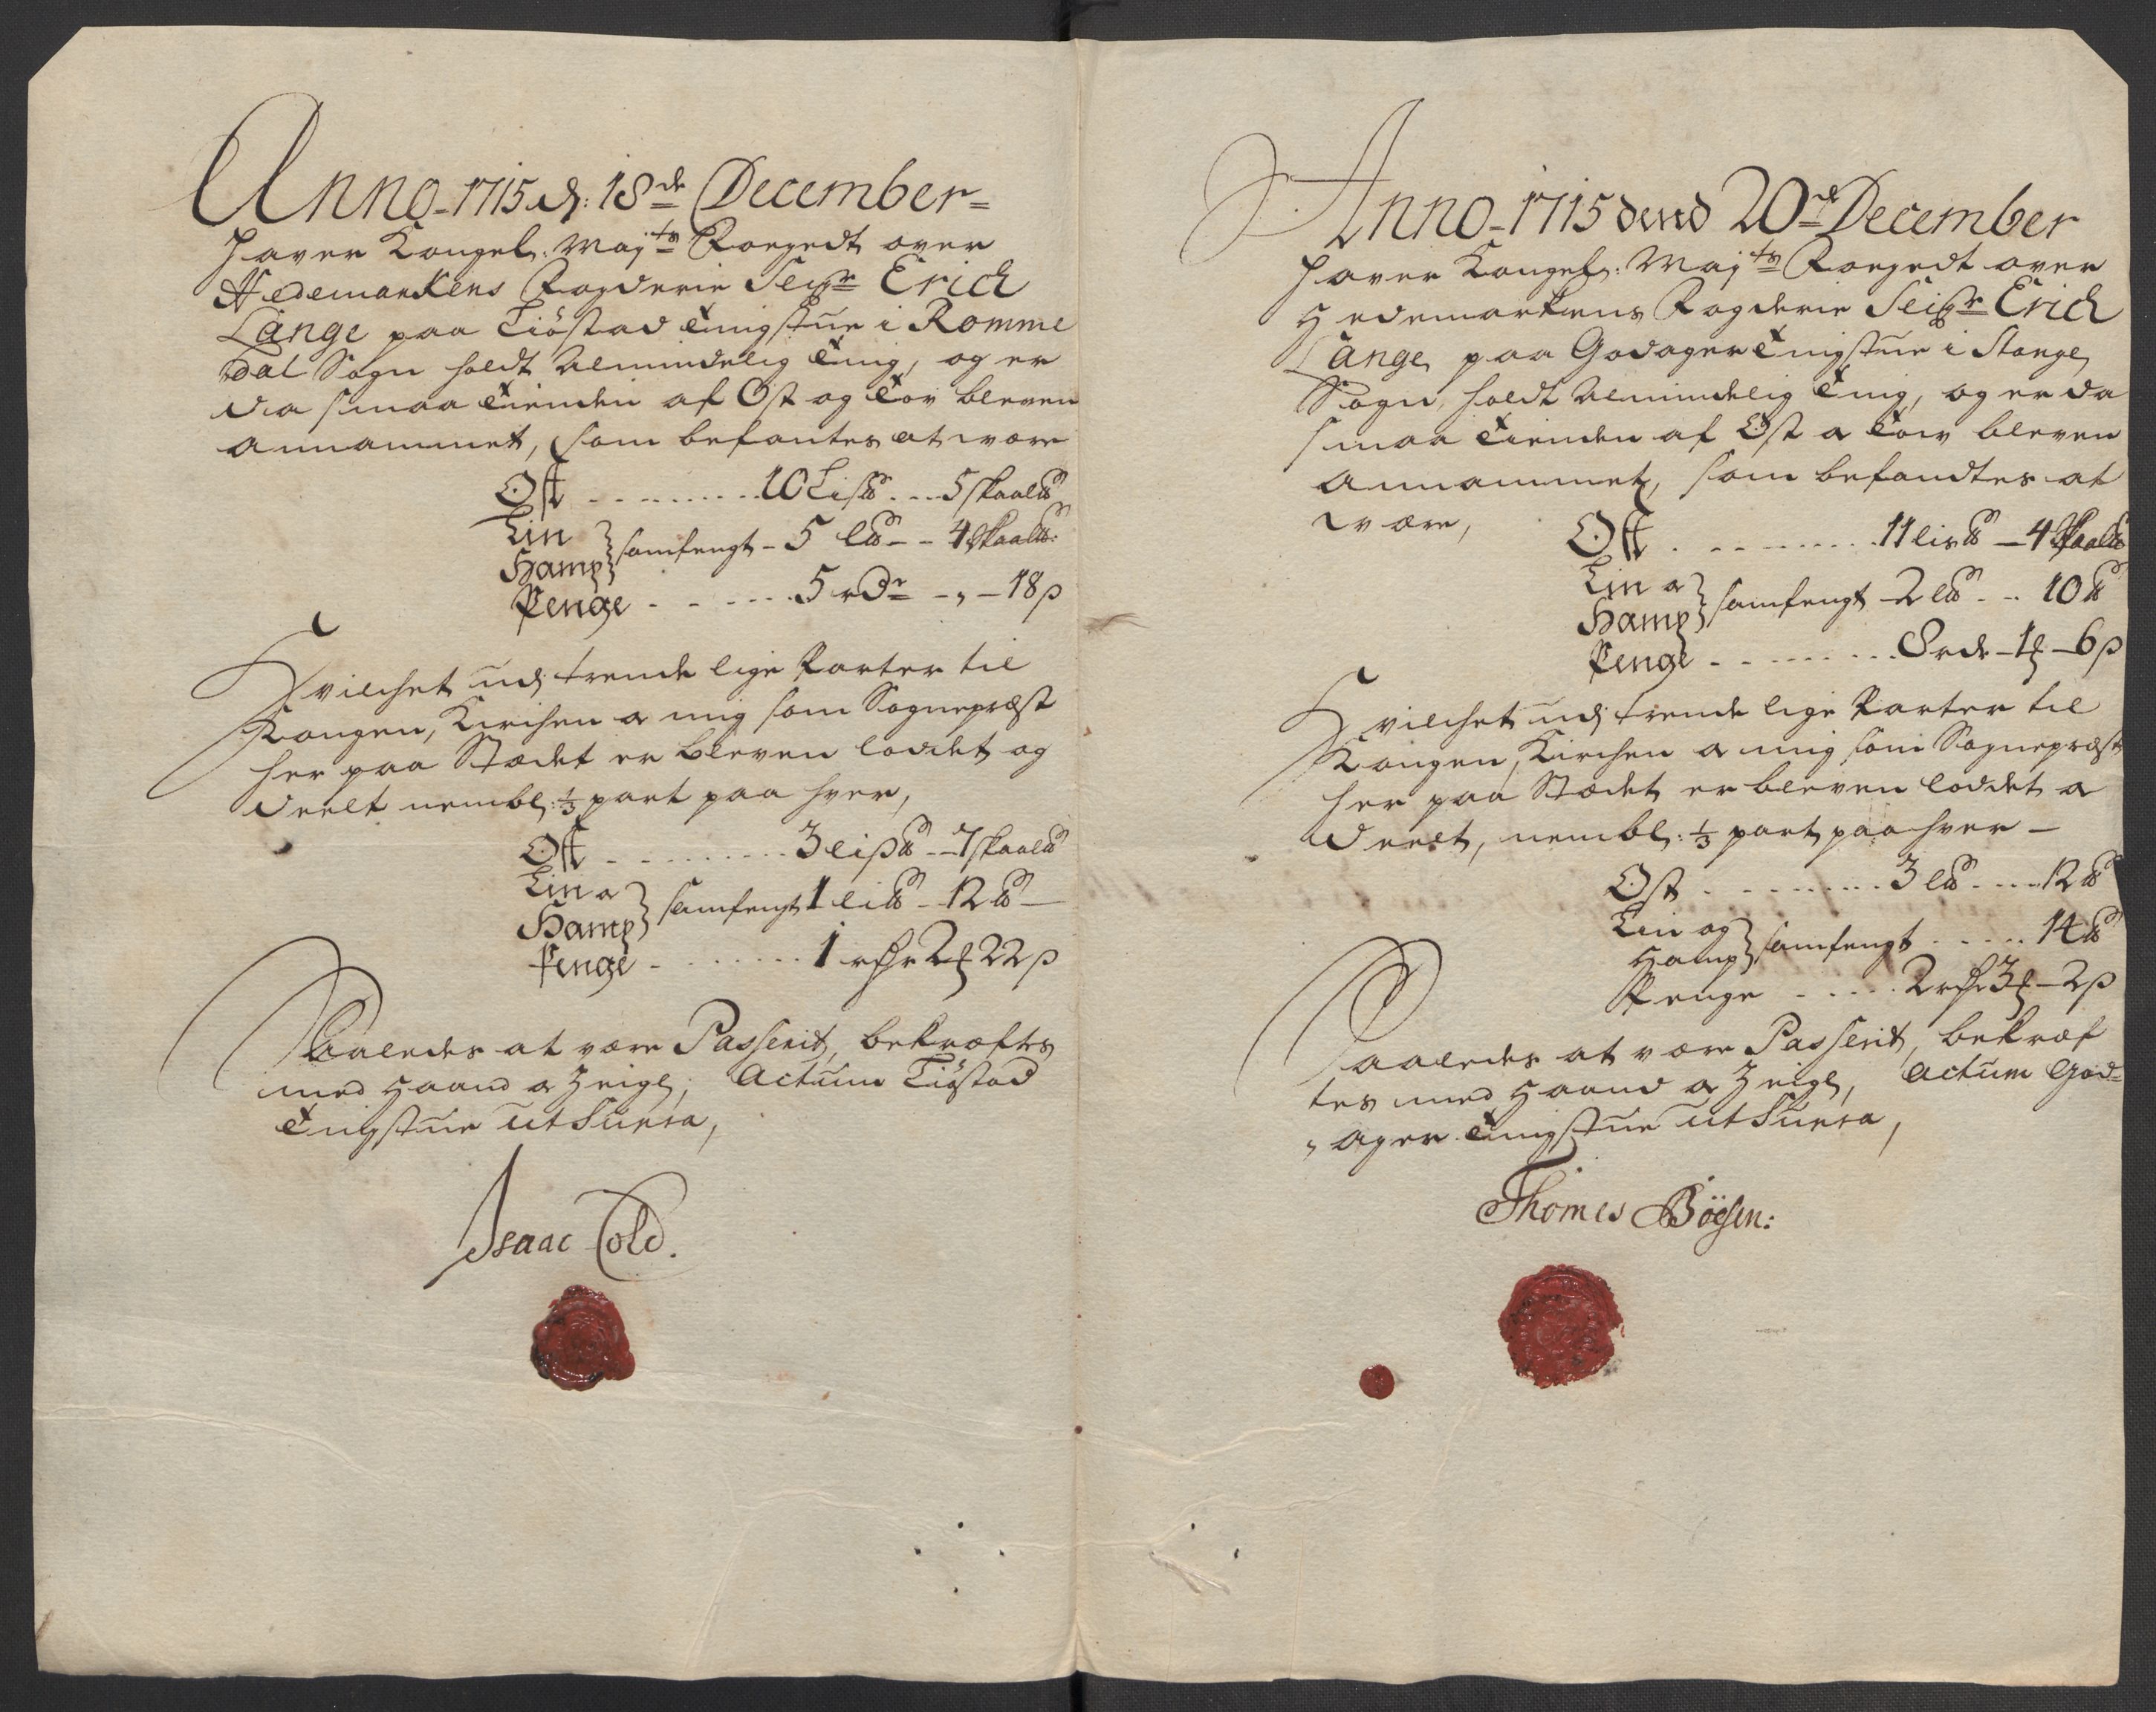 Anno 1715 d: 18de December
haver Kongel: Majts Foegedt over
Hedemarkens Fogderie Seigr Erich
Lange paa Tiøstad Tingstue i Romme
dal Sogn holdt Almindelig Ting, og er
da smaa Tienden af Ost og Tov bleven
annammet, som befantes at være
Ost ......... 10 Lis℔ ... 5 skaal℔
Lin
Hamp } samfengt - 5 L℔ - - 4 skaal℔:
Penge - - ... 5 rdr - „ - 18 β
Hvilchet udj trende lige Parter til
Kongen, Kirchen a mig som Sognepræst
her paa Stædet er bleven loddet og
deelt nembl: 1/3 part paa hver,
Ost ......... 3 lis℔ - 7 skaal℔
Lin a
Hamp } samfengt 1 lis℔ - 12 ℔ -
Penge - ....... 1 rdr 2 ꝼ 22 β
Saaledes at være Passerit, bekræftes
med Haand a Zeigl, Actum Tiøstad
Tingstue ut Supra,
Isaac Cold.
Anno 1715 dend 20de December
haver Kongel: Majts Foegedt over
Hedemarkens Fogderie Seigr Erich
Lange paa Godager Tingstue i Stange
Sogn, holdt Almindelig Ting, og er da
smaa Tienden af Ost a Tov bleven
annammet, som befandtes at
være,
Ost . ........ 11 lis℔ - 4 skaal℔
Lin a
Hamp } samfengt - 2 L℔ - .. 10 ℔
Penge - ........ 8 rdr - 1 ꝼ - 6 β
Hvilchet udj trende lige Parter til
Kongen, Kirchen a mig som Sognepræst
her paa Stædet er bleven loddet a
deelt, nembl: 1/3 part paa hver -
Ost - ........ 3 L℔ .... 12 ℔
Lin og
Hamp } samfengt ..... 14 ℔
Penge - .... 2 rdr 3 ꝼ - 2 β
Saaledes at være Passerit, bekræf
tes med Haand a Zeigl, Actum God=
„ager Tingstue ut Supra,
Thomes Böesen: